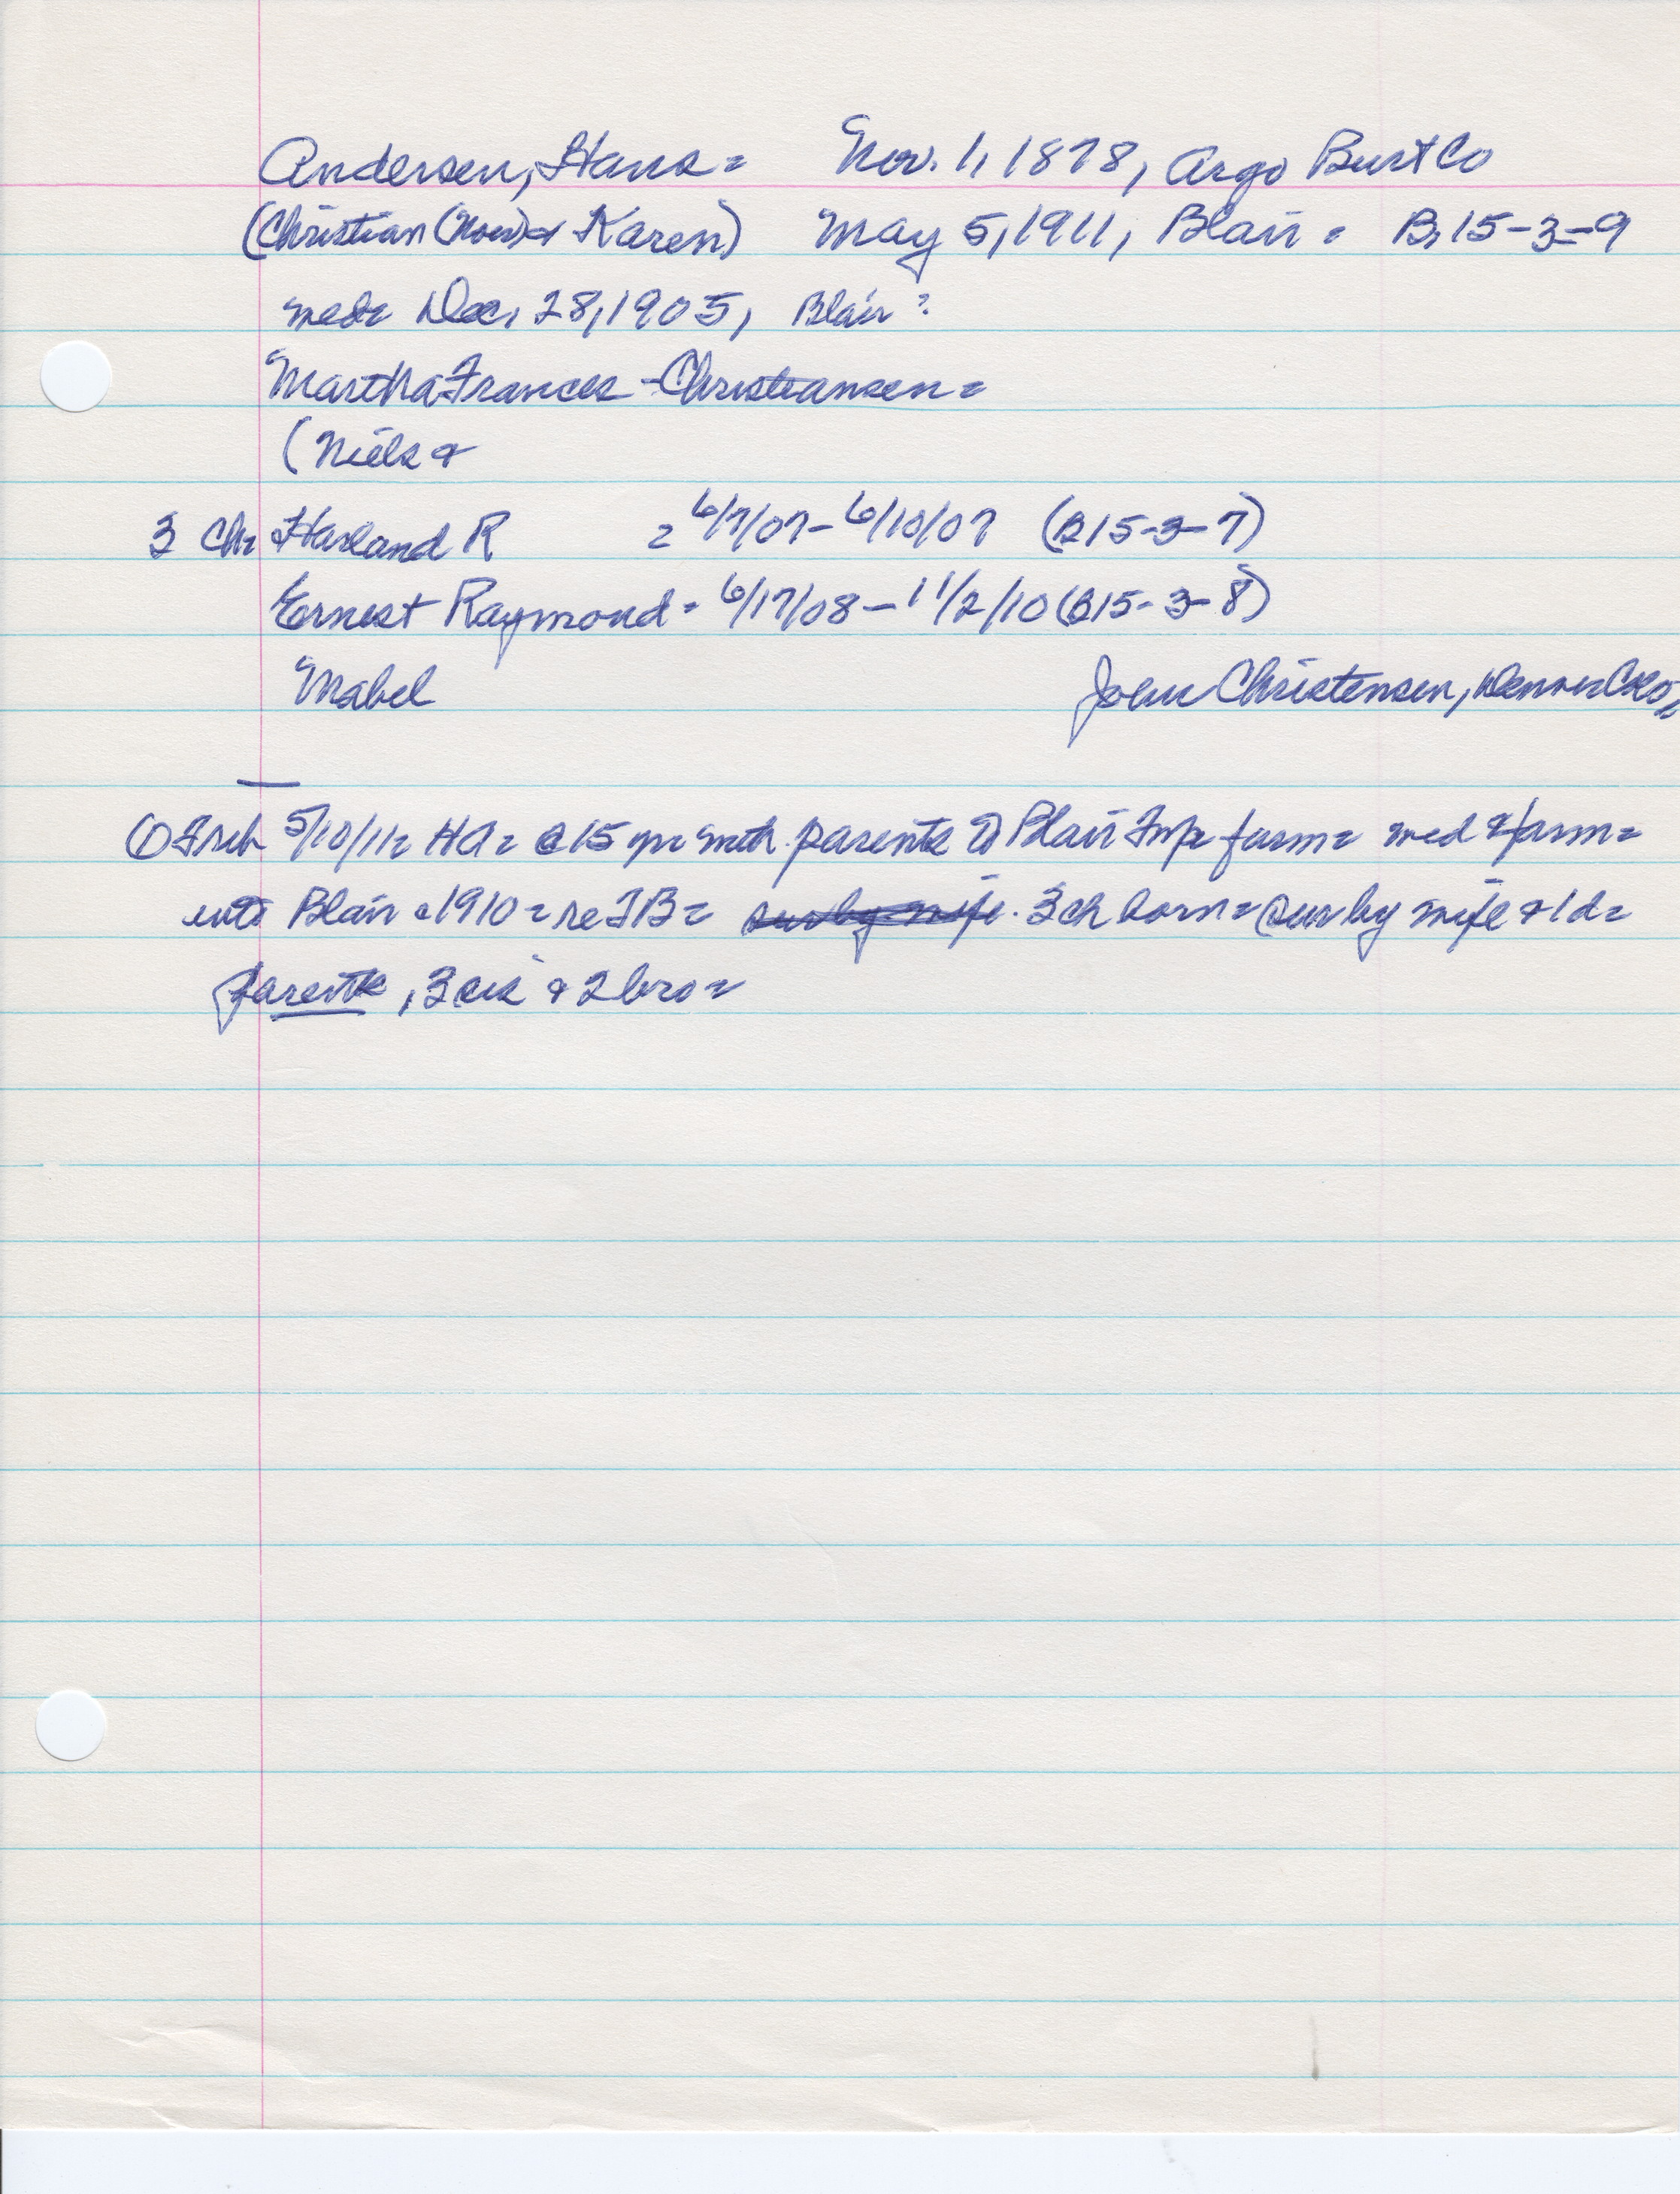 Andersen, Hans = Nov. 1, 1878, Argo Burt Co
(Christian (Nors) & Karen) May 5, 1911, Blair = B, 15-3-9
med = Dec, 28, 1905, Blair ?
Martha Frances - Christiansen =
(Niels &
3 Ch = Harland R = 6/7/07 - 6/10/07 (B15-3-7)
Ernest Raymond = 6/17/08 - 11/2/10 (B15-3-8)
Mabel John Christensen, Denver Colo,
① 5/10/11 = HA = @ 15 yr = with parents to Blair Twp farm = med & farm =
into Blair c 1910 = re TB = sur by wife. 3 ch born = sur by wife & 1 d =
parents, 3 sis & 2 bro =